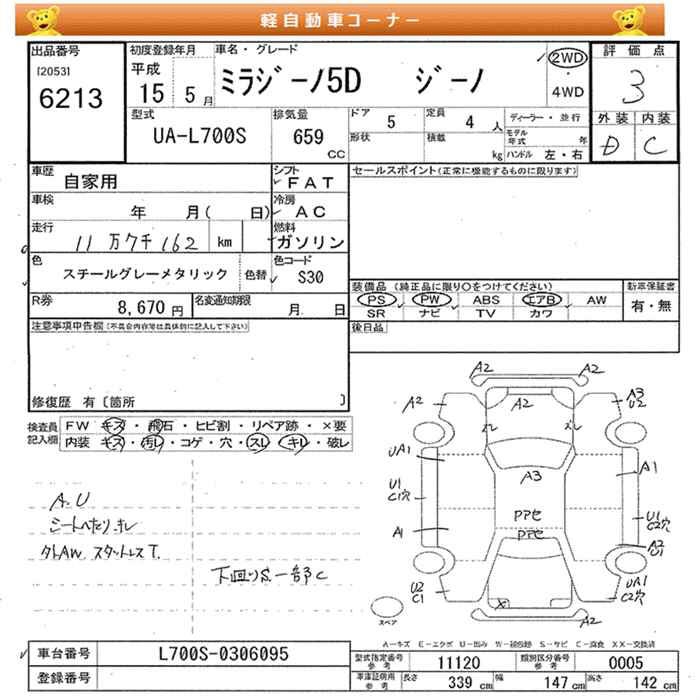 軽自動車コーナー
出品番号
[2053]
6213
初度登録年月
平成
15 5月
車名・グレード
ミラジーノ5D ジーノ
2WD
4WD
評価点
3
外装 内装
D C
型式
UA-L700S
排気量
659
CC
ドア
5
定員
4人
形状
積載
kg
ディーラー・並行
モデル年式 年
ハンドル 左・右
車歴
自家用
シフト
FAT
車検
年 月( 日)
冷房
AC
走行
11万7千162 km
燃料
ガソリン
色
スチールグレーメタリック
色替
色コード
S30
R券
8,670円
名変通知期限
月 日
セールスポイント(正常に機能するものに限ります)
装備品(純正品に限り○をつけてください)
PS PW ABS エアB AW
SR ナビ TV カワ
新車保証書
有・無
後日品
注意事項申告欄(不具合内容等は具体的に記入して下さい)
修復歴 有〔箇所 〕
検査員
記入欄
FW キズ・飛石・ヒビ割・リペア跡・×要
内装 キズ・汚レ・コゲ・穴・スレ・キレ・破レ
A.U
シートへたり.キレ
外AW スタットレスT.
下廻りS.一部C
A2
A2
A2
A2
A3
U2
UA1
A1
A3
U1
C1穴
PPセ
PPセ
U1
C2穴
A1
A2
U1
U2
C1
UA1
C2穴
X
A2
スペア
A-キズ E-エクボ U-凹み W-補修跡 S-サビ C-腐食 XX-交換済
車台番号
L700S-0306095
登録番号
型式指定番号
参考
11120
類別区分番号
参考
0005
車庫証明用
参考
長さ
339 cm
幅
147 cm
高さ
142 cm